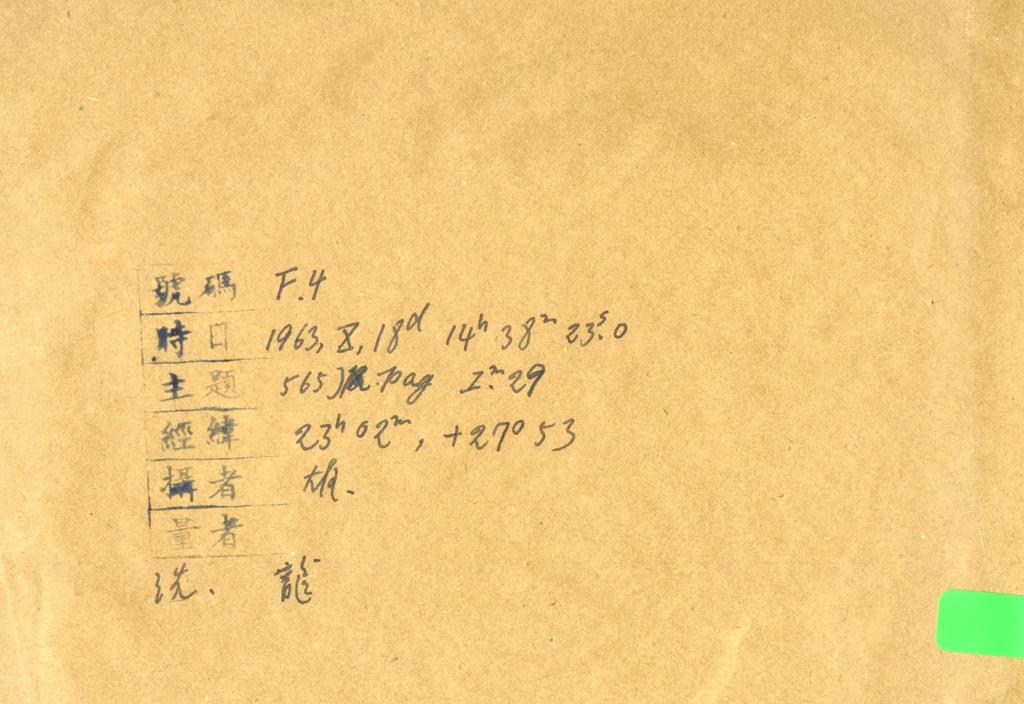 號碼 F.4
時日 1963, X, 18ᵈ 14ʰ 38ᵐ 23ˢ.0
主題 565) I.ᵐ29
經緯 23ʰ 02ᵐ, +27° 53
攝者
量者
洗. 龍